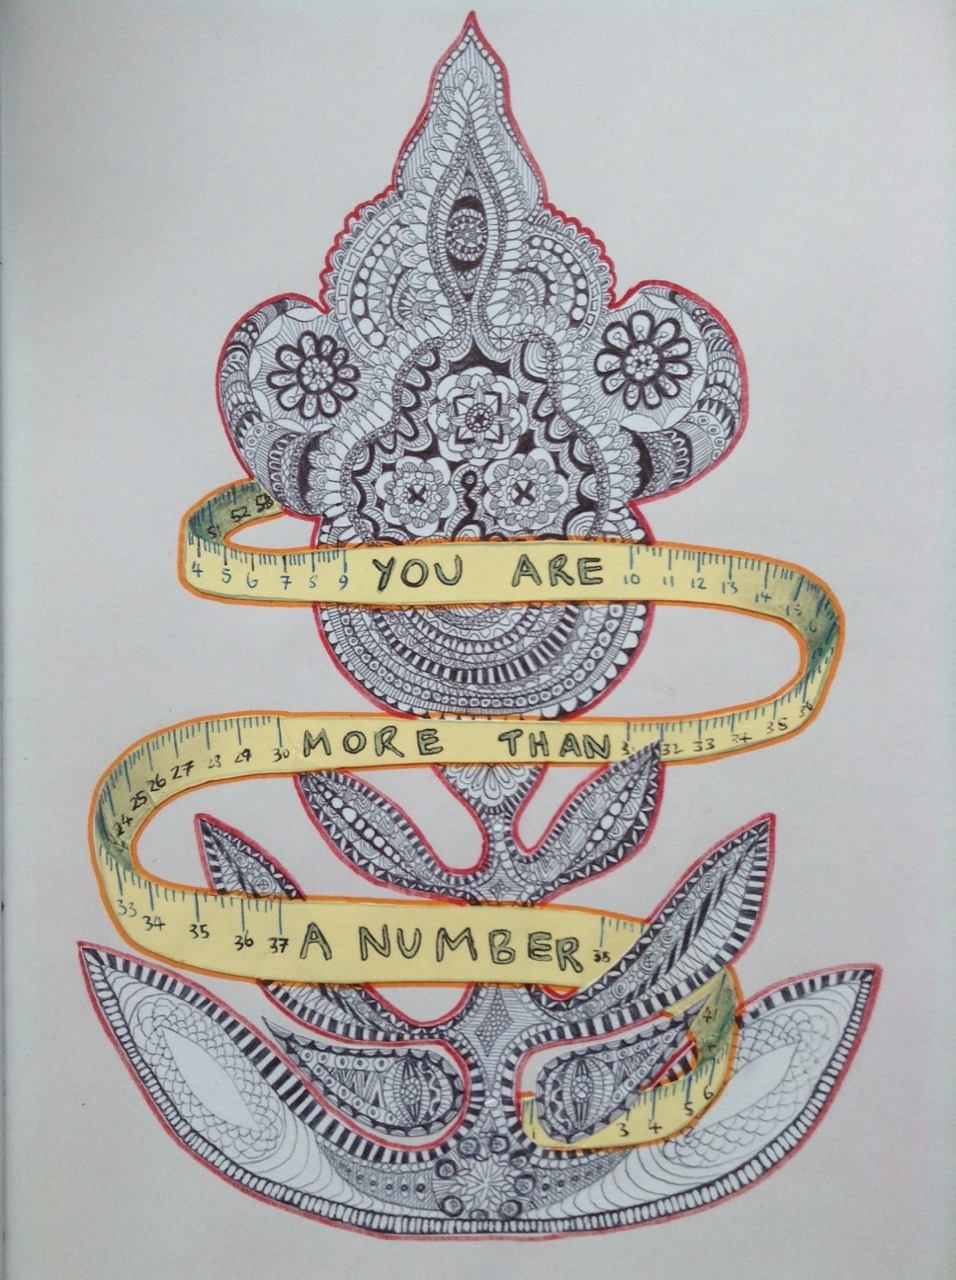 51 52 53
4 5 6 7 8 9 YOU ARE 10 11 12 13 14 15
30 MORE THAN 32 33 34 35
24 25 26 27 28 29
33 34 35 36 37 A NUMBER 38
41
3 4 5 6